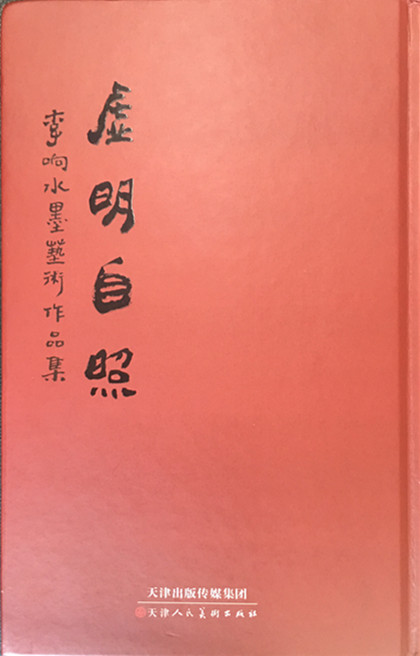 虚明自照
李响水墨藝術作品集
天津出版传媒集团
天津人民美術出版社